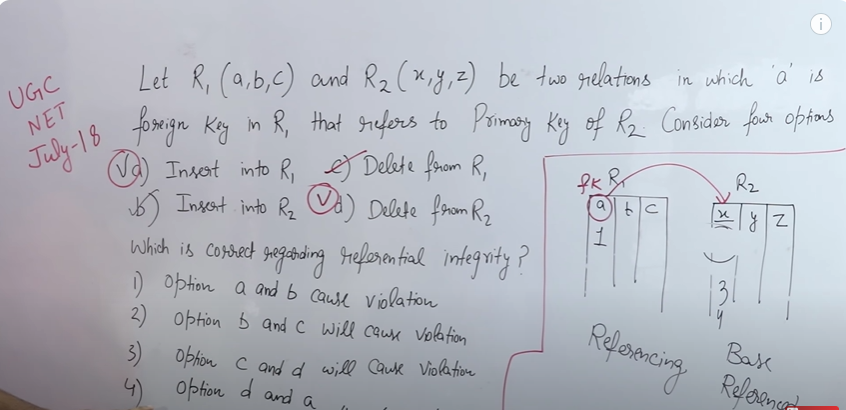 UGC
NET
July-18
Let R₁ (a,b,c) and R₂ (x,y,z) be two relations in which 'a' is
foreign key in R₁ that refers to Primary Key of R₂. Consider four options
a) Insert into R₁ c) Delete from R₁
b) Insert into R₂ d) Delete from R₂
Which is correct regarding referential integrity?
1) Option a and b cause violation
2) Option b and c will cause violation
3) Option c and d will cause violation
4) Option d and a
fk R₁
R₂
a b c
x y z
1
3
4
Referencing
Base
Referenced